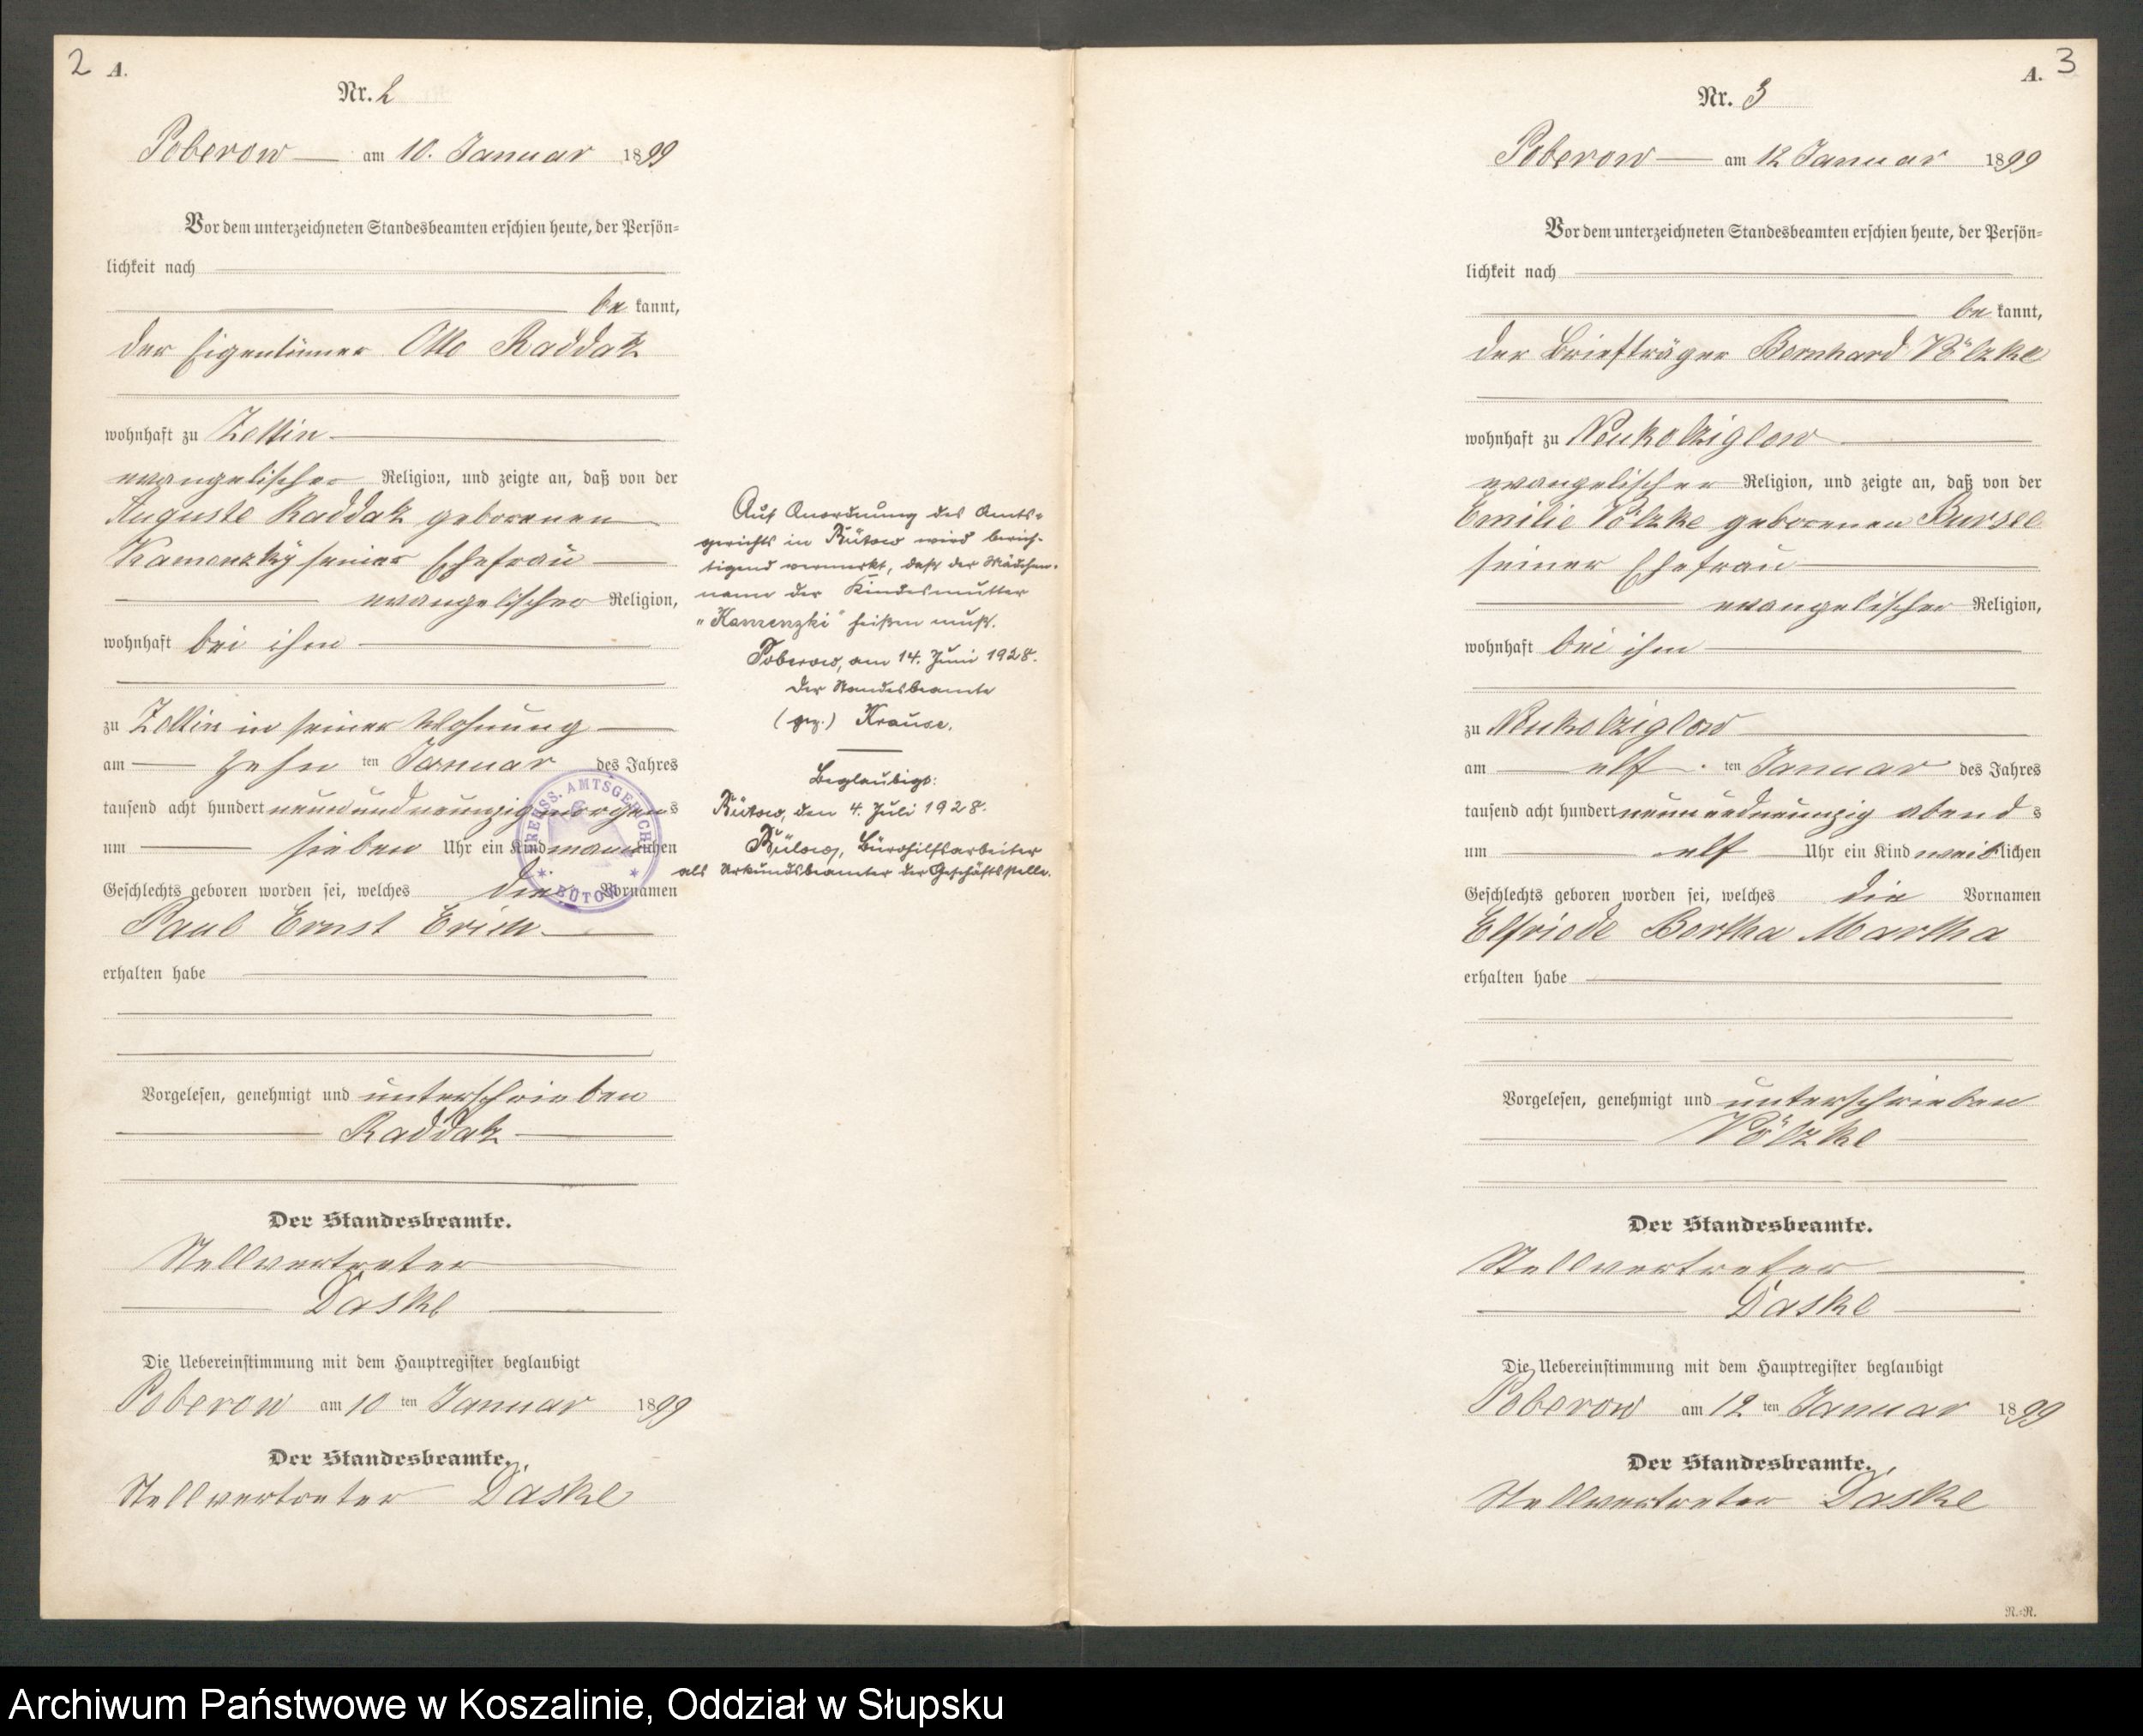 2 A.
Nr. 2
Poberow am 10. Januar 1899
Vor dem unterzeichneten Standesbeamten erschien heute, der Persön-
lichkeit nach
be kannt,
der Eigentümer Otto Raddatz
wohnhaft zu Zettin
evangelischer Religion, und zeigte an, daß von der
Auguste Raddatz geborenen
Kamenzky seiner Ehefrau
evangelischer Religion,
wohnhaft bei ihm
zu Zettin in seiner Wohnung
am zehn ten Januar des Jahres
tausend acht hundert neunundneunzig morgens
um sieben Uhr ein Kind männlichen
Geschlechts geboren worden sei, welches die Vornamen
Paul Ernst Erich
erhalten habe
Vorgelesen, genehmigt und unterschrieben
Raddatz
Der Standesbeamte.
Stellvertreter
Daske
Die Uebereinstimmung mit dem Hauptregister beglaubigt
Poberow am 10 ten Januar 1899
Der Standesbeamte.
Stellvertreter Daske
Auf Anordnung des Amts-
gerichts in Bütow wird berich-
tigend vermerkt, daß der Mädchen-
name der Kindesmutter
"Kamenzki" heißen muß.
Poberow, am 14. Juni 1928.
Der Standesbeamte
(gez.) Krause.
Beglaubigt:
Bütow, den 4. Juli 1928.
Bülow, Bürohilfsarbeiter
als Urkundsbeamter der Geschäftsstelle.
PREUSS. AMTSGERICHT
* BÜTOW *
A. 3
Nr. 3
Poberow am 12 Januar 1899
Vor dem unterzeichneten Standesbeamten erschien heute, der Persön-
lichkeit nach
be kannt,
der Briefträger Bernhard Völzke
wohnhaft zu Neukolziglow
evangelischer Religion, und zeigte an, daß von der
Emilie Völzke geborenen
seiner Ehefrau
evangelischer Religion,
wohnhaft bei ihm
zu Neukolziglow
am elf ten Januar des Jahres
tausend acht hundert neunundneunzig abend s
um elf Uhr ein Kind weiblichen
Geschlechts geboren worden sei, welches die Vornamen
Elfriede Bertha Martha
erhalten habe
Vorgelesen, genehmigt und unterschrieben
Völzke
Der Standesbeamte.
Stellvertreter
Daske
Die Uebereinstimmung mit dem Hauptregister beglaubigt
Poberow am 12 ten Januar 1899
Der Standesbeamte.
Stellvertreter Daske
R.-R.
Archiwum Państwowe w Koszalinie, Oddział w Słupsku